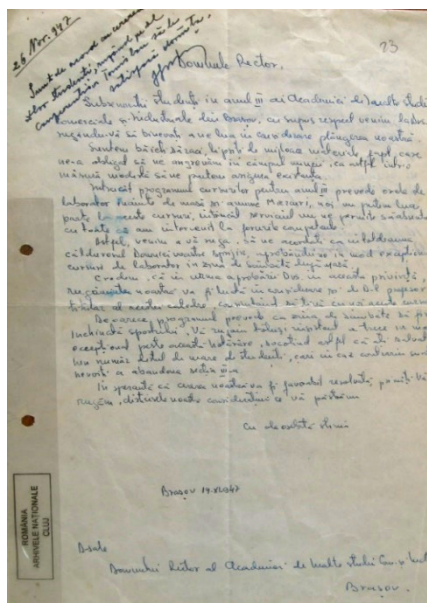 26 Nov. 947
Sunt de acord cu cererea
d-lor studenți, rugând pe dl
23
Domnule Rector,
Subsemnații studenți în anul III ai Academiei de Înalte Studii
Comerciale și Industriale din Brașov, cu supus respect venim
rugându-vă să binevoiți a ne lua în considerare plângerea noastră.
Suntem băieți săraci, lipsiți de mijloace materiale, fapt, care
ne-a obligat să ne angajăm în câmpul muncii, ca astfel într-o
măsură modestă să ne putem asigura existența.
Întrucât programul cursurilor pentru anul III prevede orele de
laborator înainte de masă și anume Miercuri, noi nu putem lua
parte la aceste cursuri, întrucât serviciul nu ne permite
cu toate că am intervenit la forurile competente.
Astfel, venim a vă ruga, să ne acordați ca întotdeauna
călduros Dumneavoastră sprijin, aprobându-ne în mod excepțional
cursuri de laborator în ziua de sâmbătă după masă.
Credem, că în urma aprobării Dvs. în această privință,
rugămintea noastră va fi luată în considerare și de D-l profesor
titular al acestei catedre,
Deoarece, programul prevede ca ziua de sâmbătă să fie
închinată sportului, Vă rugăm totuși insistent a trece în mod
excepțional peste această hotărâre, socotind astfel că ați salvat
un număr destul de mare de studenți, cari în caz contrar sunt
nevoiți a abandona
În speranța că cererea noastră va fi favorabil rezolvată
rugăm, distinsele noastre considerațiuni ce vă păstrăm
Cu deosebită stimă
Brașov
D-sale
Domnului Rector al Academiei de Înalte Studii Com. și
Brașov.
ROMÂNIA
ARHIVELE NAȚIONALE
CLUJ